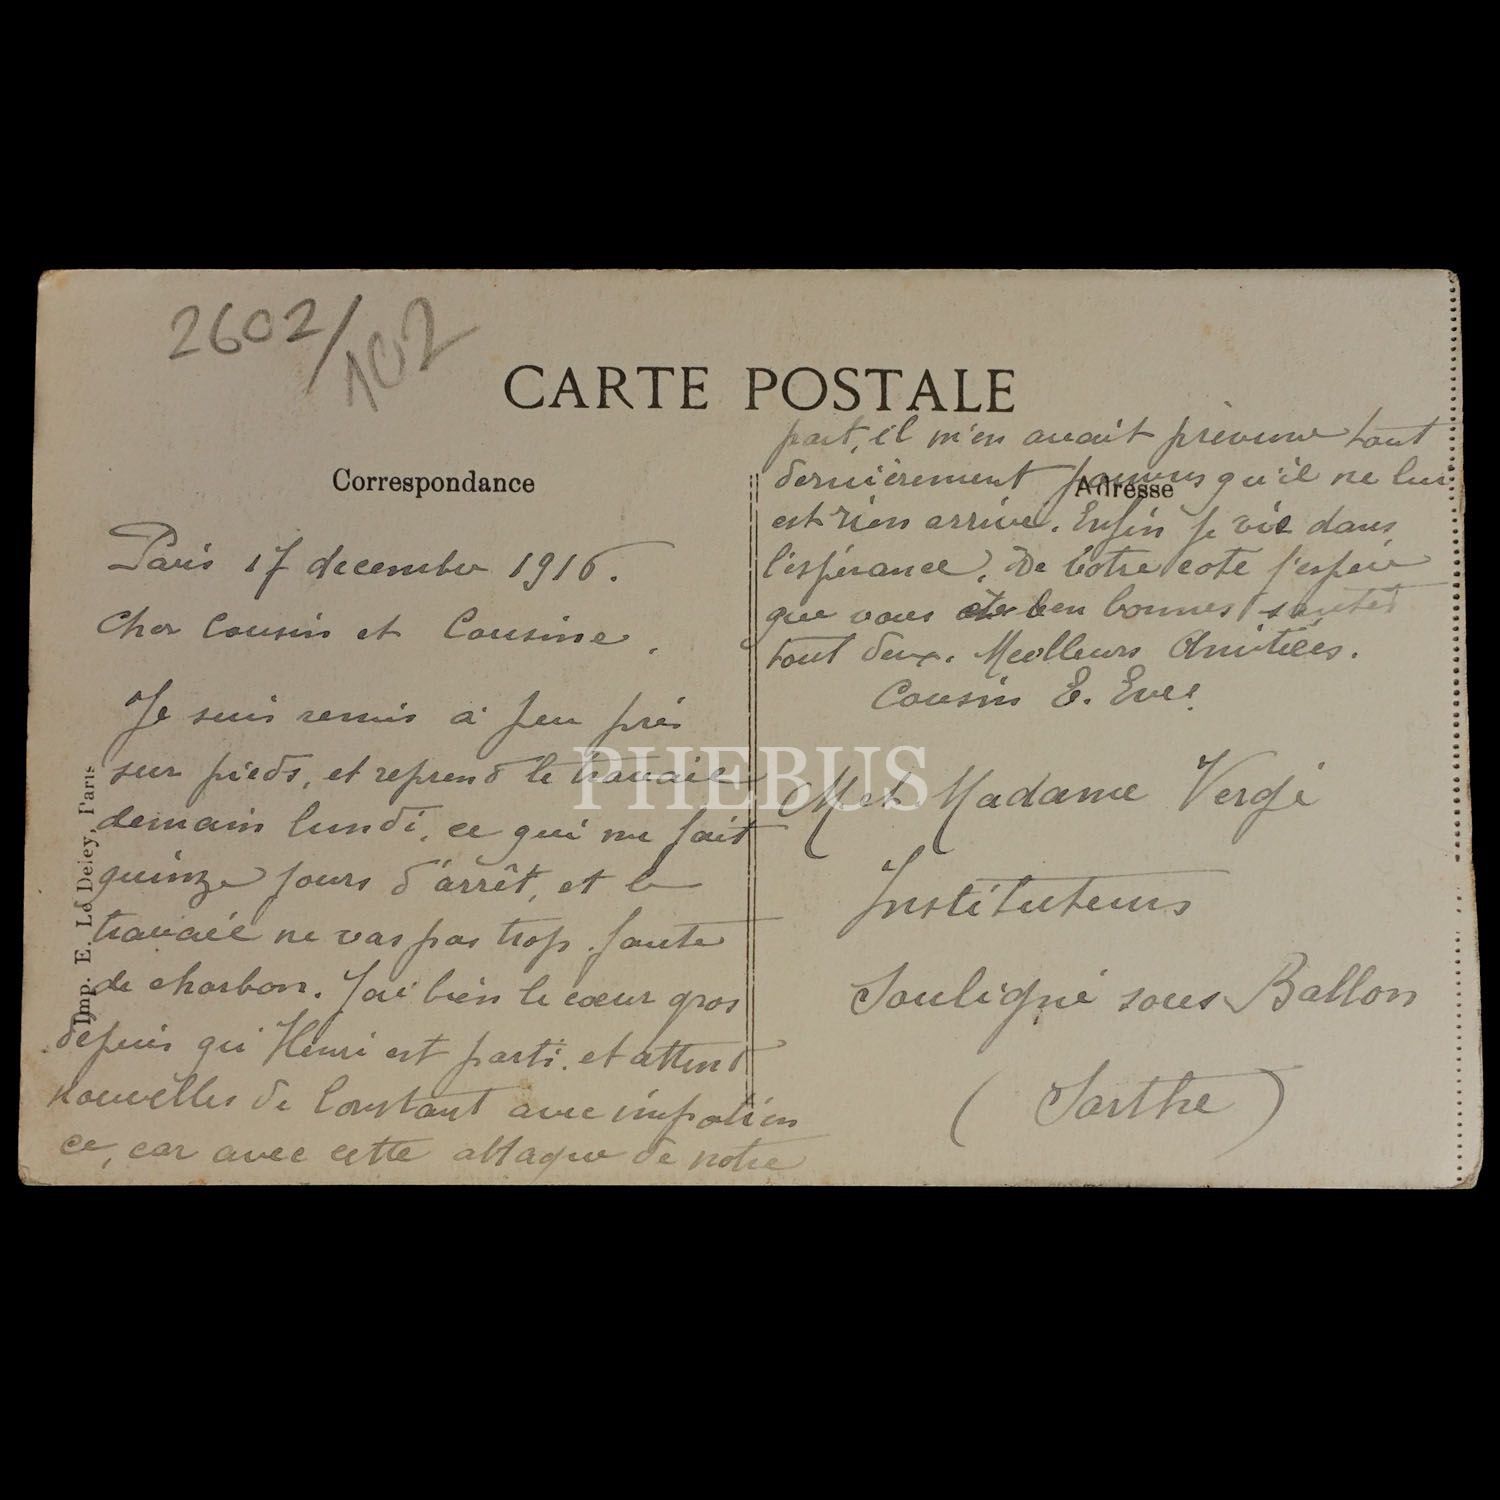 2602/102
CARTE POSTALE
Correspondance
Paris 17 decembre 1916.
Cher Cousin et Cousine,
Je suis remis à peu près
sur pieds, et reprend le travail
demain lundi, ce qui me fait
quinze jours d'arrêt, et le
travail ne vas pas trop, faute
de charbon. J'ai bien le cœur gros
depuis qu'Henri est parti, et attend
nouvelles de Constant avec impatien
ce, car avec cette attaque de notre
Imp. E. Le Deley, Paris
part, il m'en avait prévenu tout
dernièrement pourvus qu'il ne lui
Adresse
est rien arrivé. Enfin je vis dans
l'espérance. De votre coté j'espère
que vous êtes en bonnes santés
tout deux. Meilleurs Amitiées.
Cousin E. Eve
M et Madame Vergé
Instituteurs
Souligné sous Ballon
(Sarthe)
PHEBUS